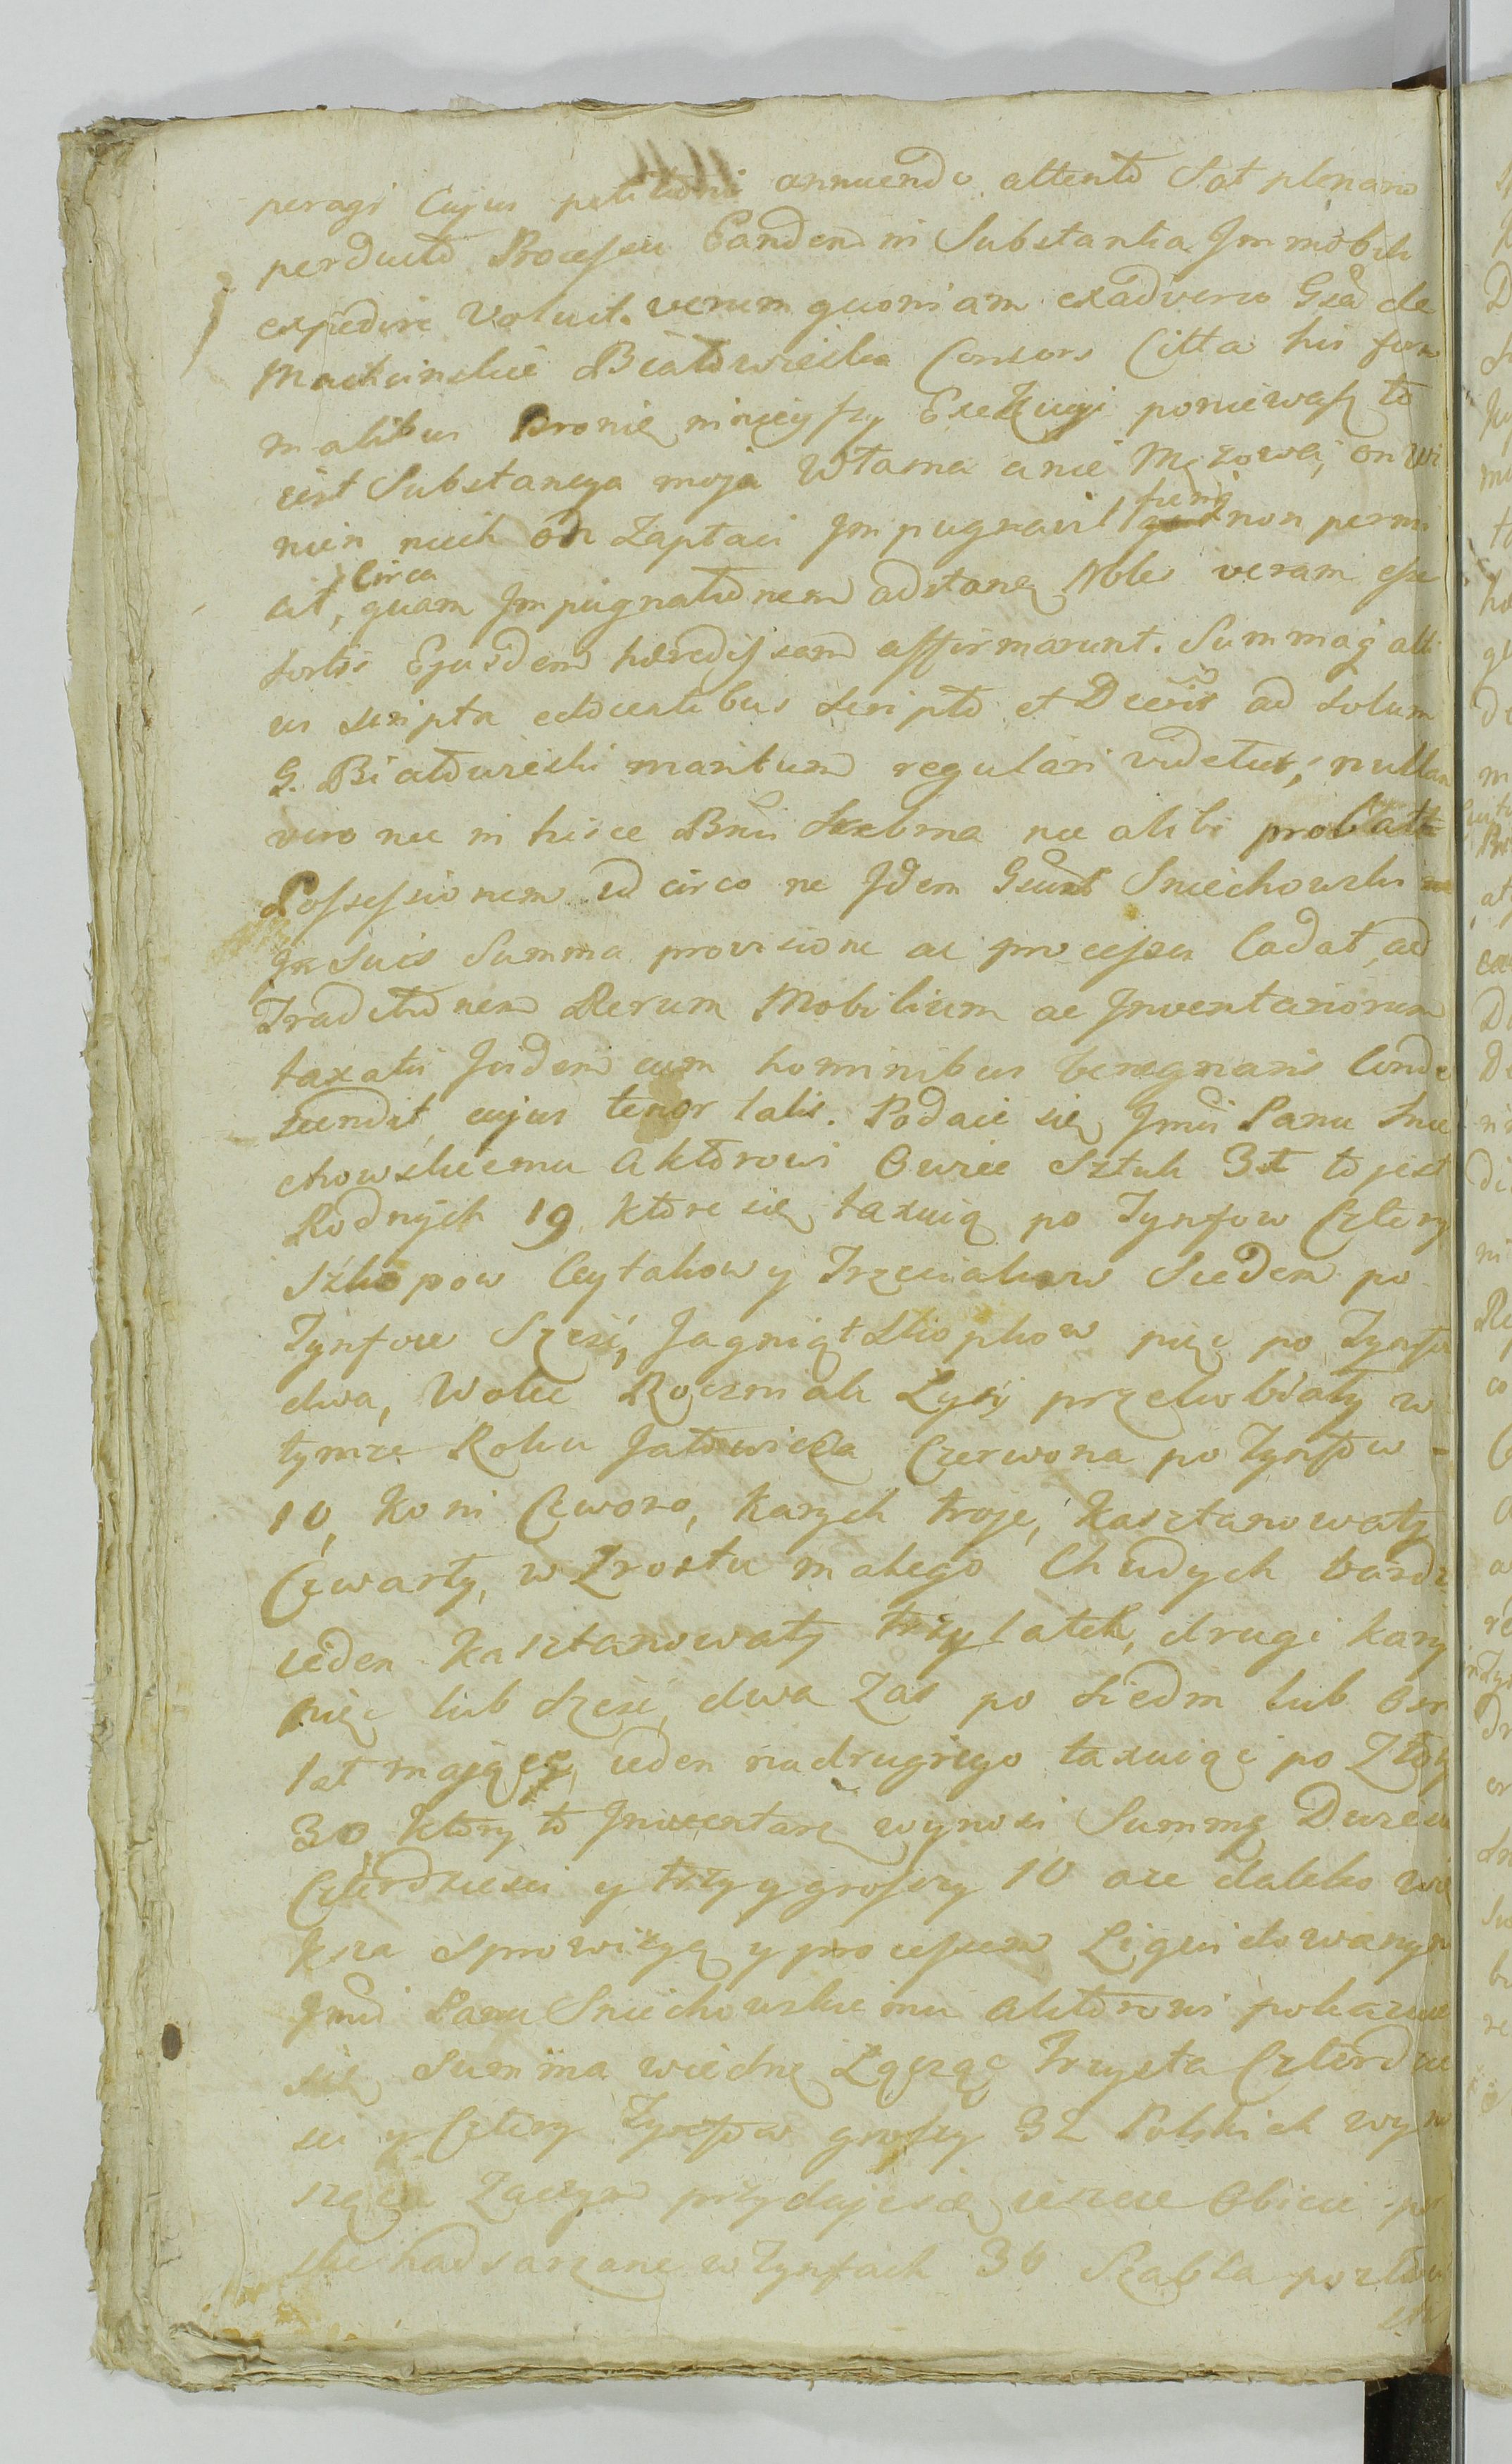 peragi Cujus petitioni annuendo attento Sat plenario
perducto Processu Eandem in Substantia Immobili
expedire Voluit. verum quoniam exadverso Gsa de
Machcinskie Białowieska Consors Citta his for
malibus Bronię ninieyszy Exekucyi poniewasz to
iest Substancya moja Własna a nie Męzowa, on wi
nien niech on Zapłaci Impugnavit fieriq non permi
sit, Circa quam Impugnationem adstans Nobles veram esse
sortis Ejusdem hæredissam affirmarunt. Summaq alti
us scripta edocentibus scripto et Decris ad solum
G. Białowieski maritum regulari videtur, nullam
vero nec in hisce Bnis Srebrna nec alibi probate
Possessionem id circo ne Idem Gsus Sniechowski
in Suis Summa provisione ac processu Cadat, ad
Traditionem Rerum Mobilium ac Inventariorum
taxatis Iisdem cum hominibus benegnaris Conde
scendit, cujus tenor talis. Podaie się Jmci Panu Snie
chowskiemu Aktorowi Owiec Sztuk 31 to jest
Rodnych 19 które się taxuią po Tynfow Cztery
Szkopow Ceytakow y Trzeciakow Siedem po
Tynfow Sześć, Jagniąt Skopkow pięć po Tynfu
dwa, Wołek Roczniak Łysy przełobiały w
tymze Roku Jałowiczka Czerwona po Tynfow -
10, Koni Czworo, Karych troje, Kasztanowaty
Czwarty, w Zrostu małego Chudych bardz
ieden Kasztanowaty trzy latek, drugi kary
pięć lub sześć, dwa Zas po siedm lub osm
lat mający, ieden na drugiego taxuiąc po Złoty
30, który to Inwentarz wynosi Summę Dwieście
Czterdziesci y trzy y groszy 10 a ze daleko wię
ksza Sprowizyą y processem Liquidowanym
Jmci Panu Sniechowskiemu Aktorowi pokazuie
się Summa wiednę Łącząc Trzysta Czterdzie
sci y Cztery Tynfow groszy 32 Polskich wyno
sząca Zaczym przydaje się ieszcze Obicie
skie nadsarzane w Tynfach 36 Szabla